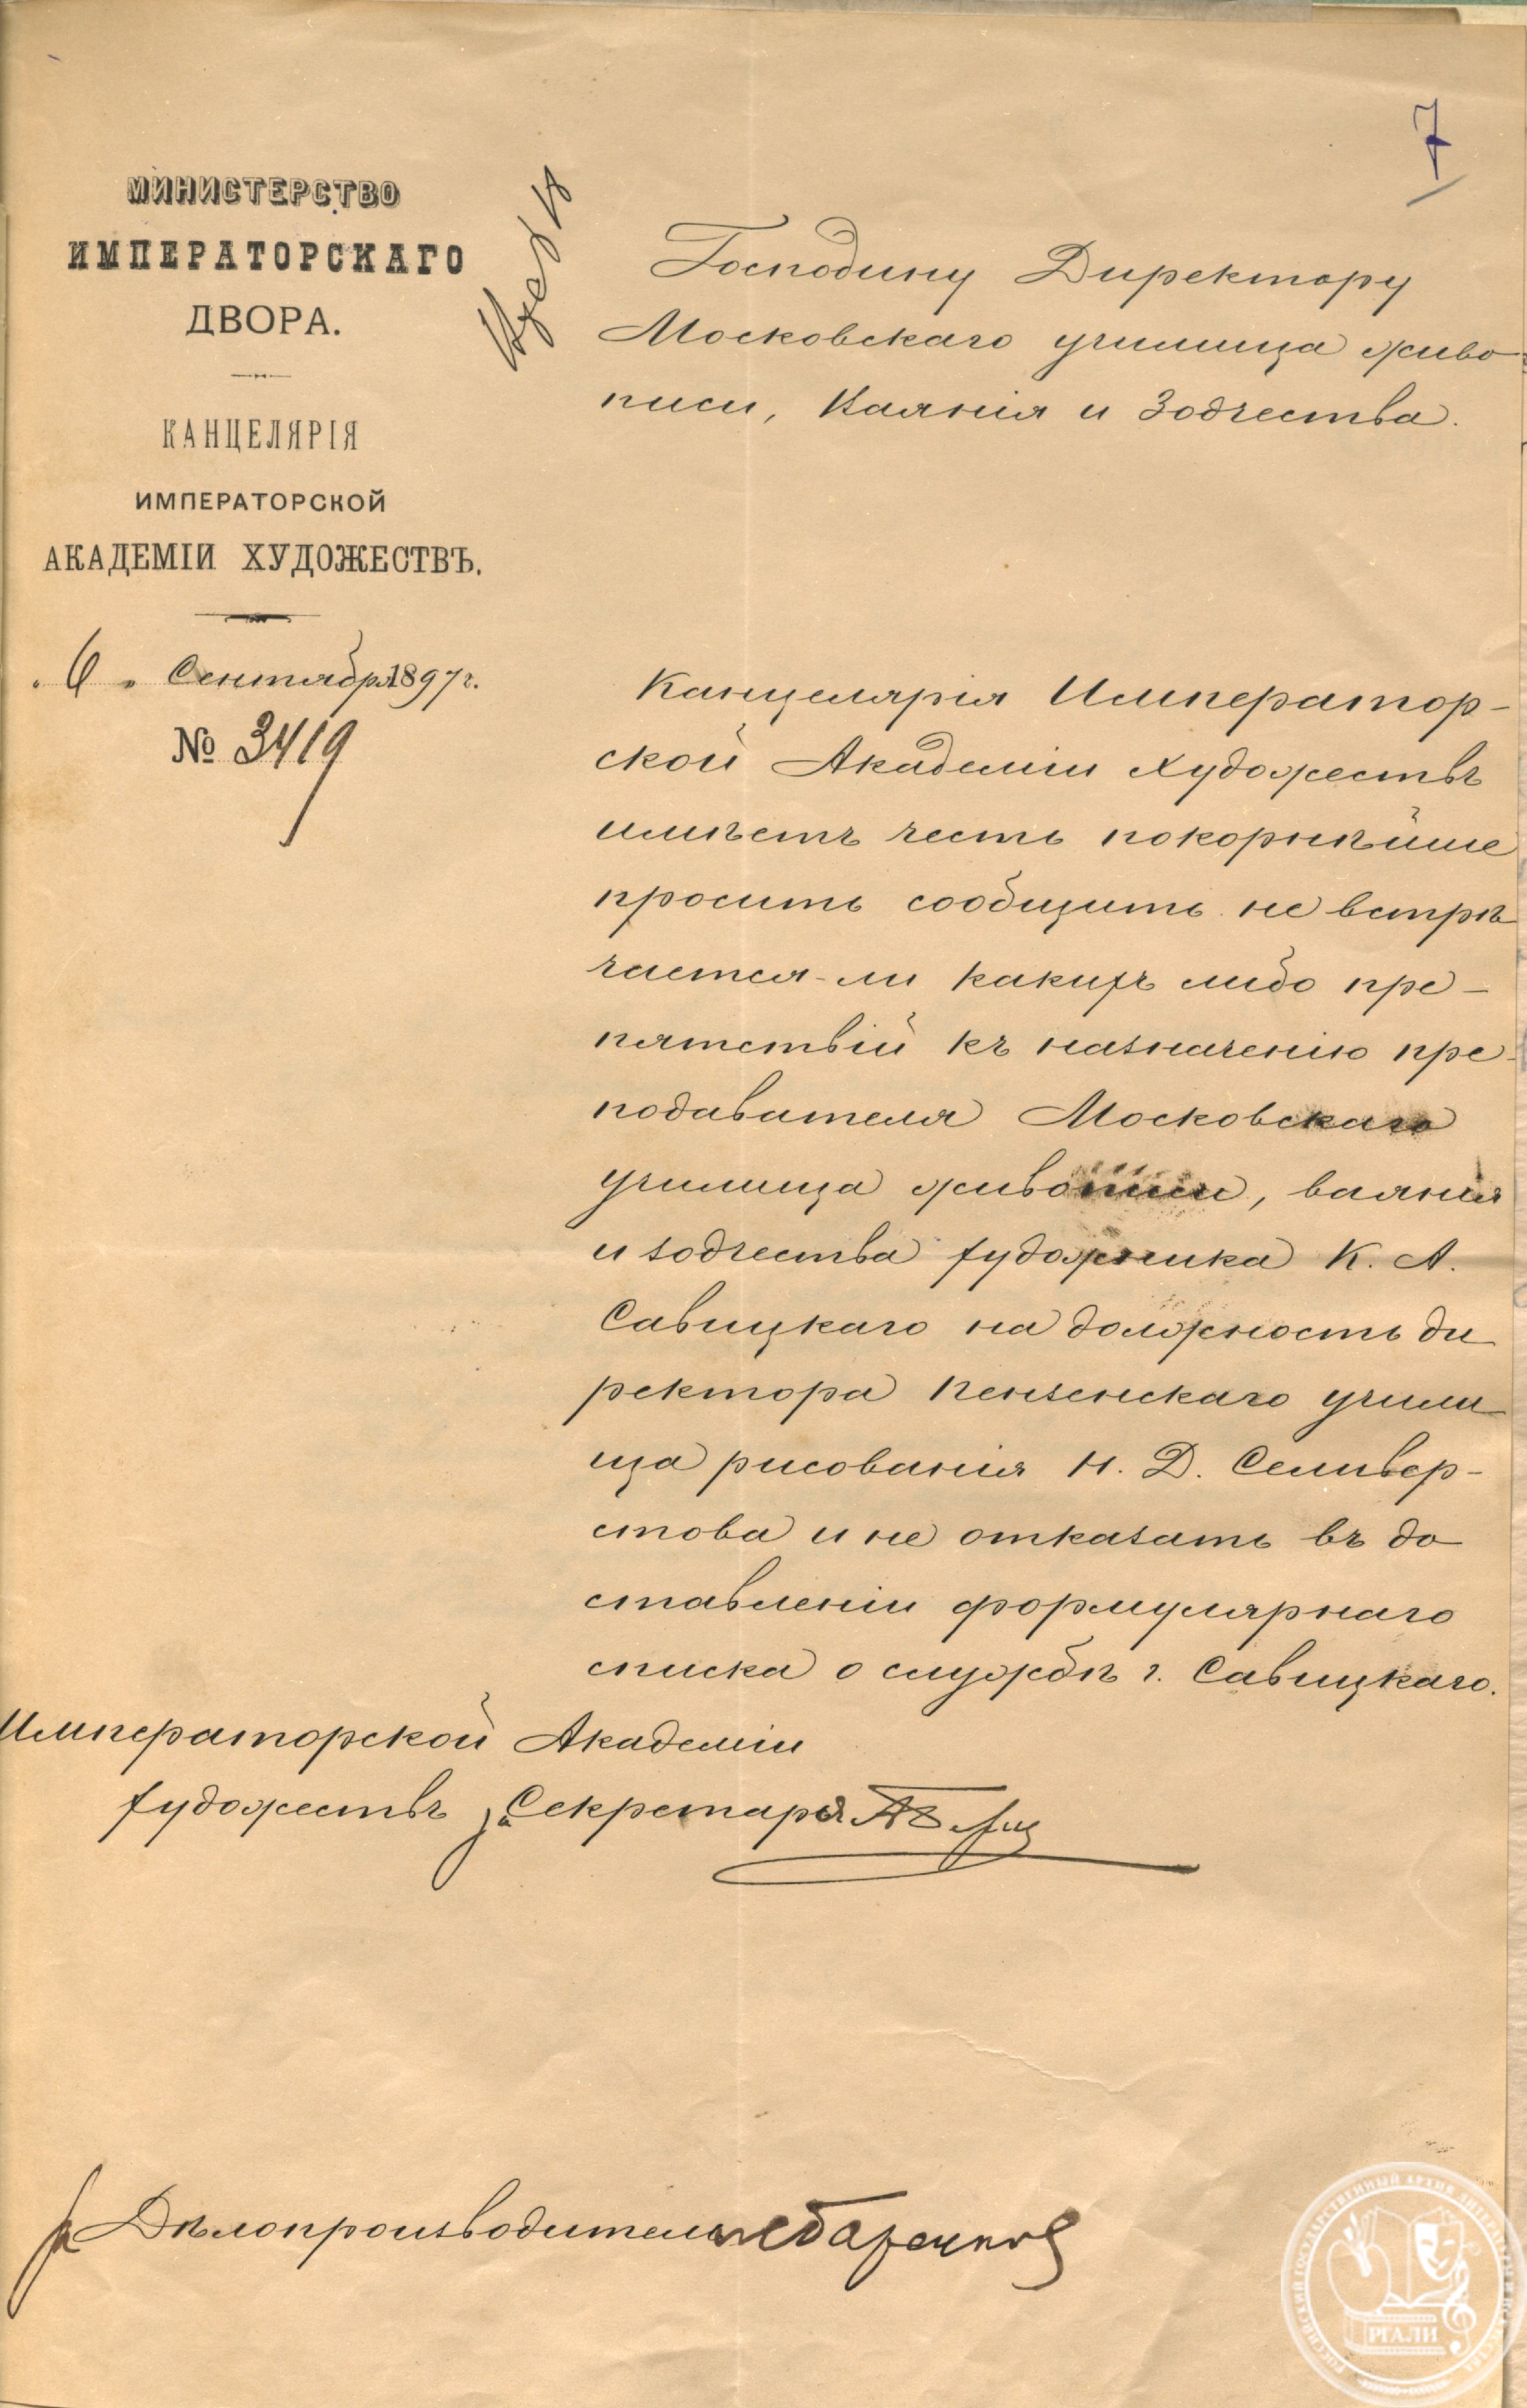 7
МИНИСТЕРСТВО
ИМПЕРАТОРСКАГО
ДВОРА.
КАНЦЕЛЯРІЯ
ИМПЕРАТОРСКОЙ
АКАДЕМІИ ХУДОЖЕСТВЪ.
„6„ Сентября 1897 г.
№ 3419
Господину Директору
Московскаго училища живо-
писи, Ваянія и Зодчества.
Канцелярія Император-
ской Академіи Художествъ
имѣетъ честь покорнѣйше
просить сообщить не встрѣ
чается-ли какихъ либо пре-
пятствій къ назначенію пре-
подавателя Московскаго
училища живописи, ваянія
и зодчества художника К. А.
Савицкаго на должность ди
ректора Пензенскаго учили
ща рисованія Н. Д. Селивер-
стова и не отказать въ до
ставленіи формулярнаго
списка о службѣ г. Савицкаго.
Императорской Академіи
художествъ, за Секретаря
за Дѣлопроизводителя
РОССИЙСКИЙ ГОСУДАРСТВЕННЫЙ АРХИВ ЛИТЕРАТУРЫ И ИСКУССТВА
РГАЛИ